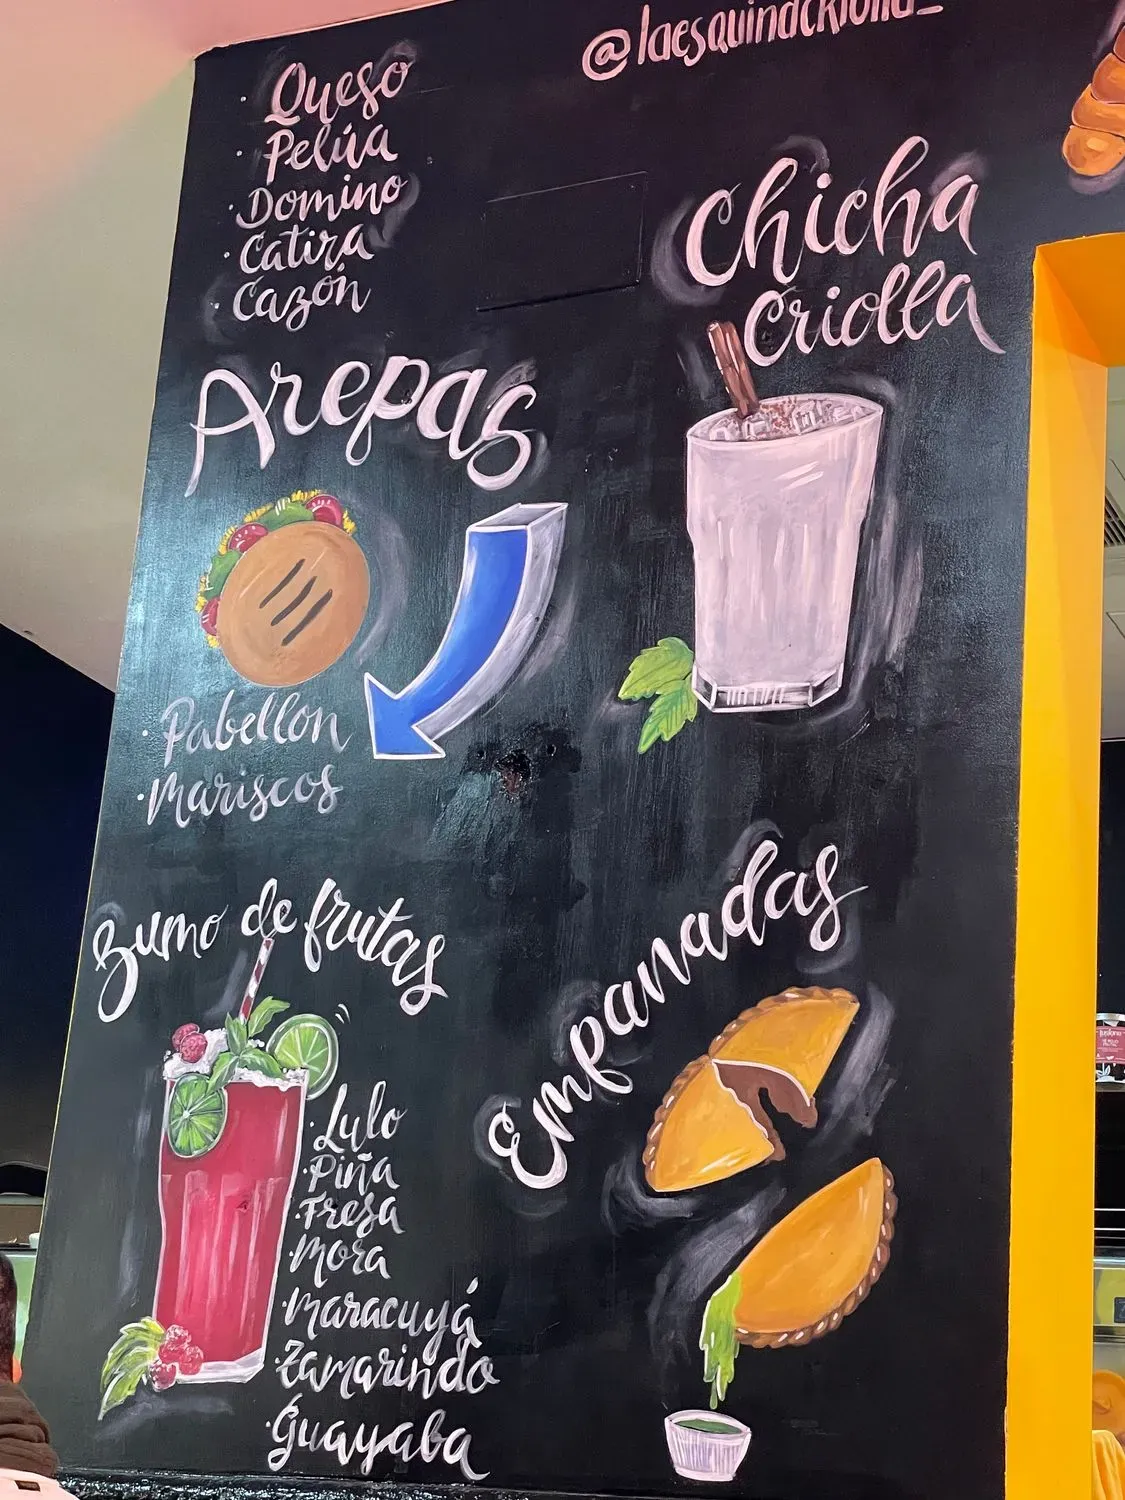 @laesquinacriolla_
Queso
Pelúa
Domino
Catira
Cazón
Chicha
Criolla
Arepas
Pabellon
Mariscos
Zumo de frutas
Lulo
Piña
Fresa
Mora
Maracuyá
Tamarindo
Guayaba
Empanadas